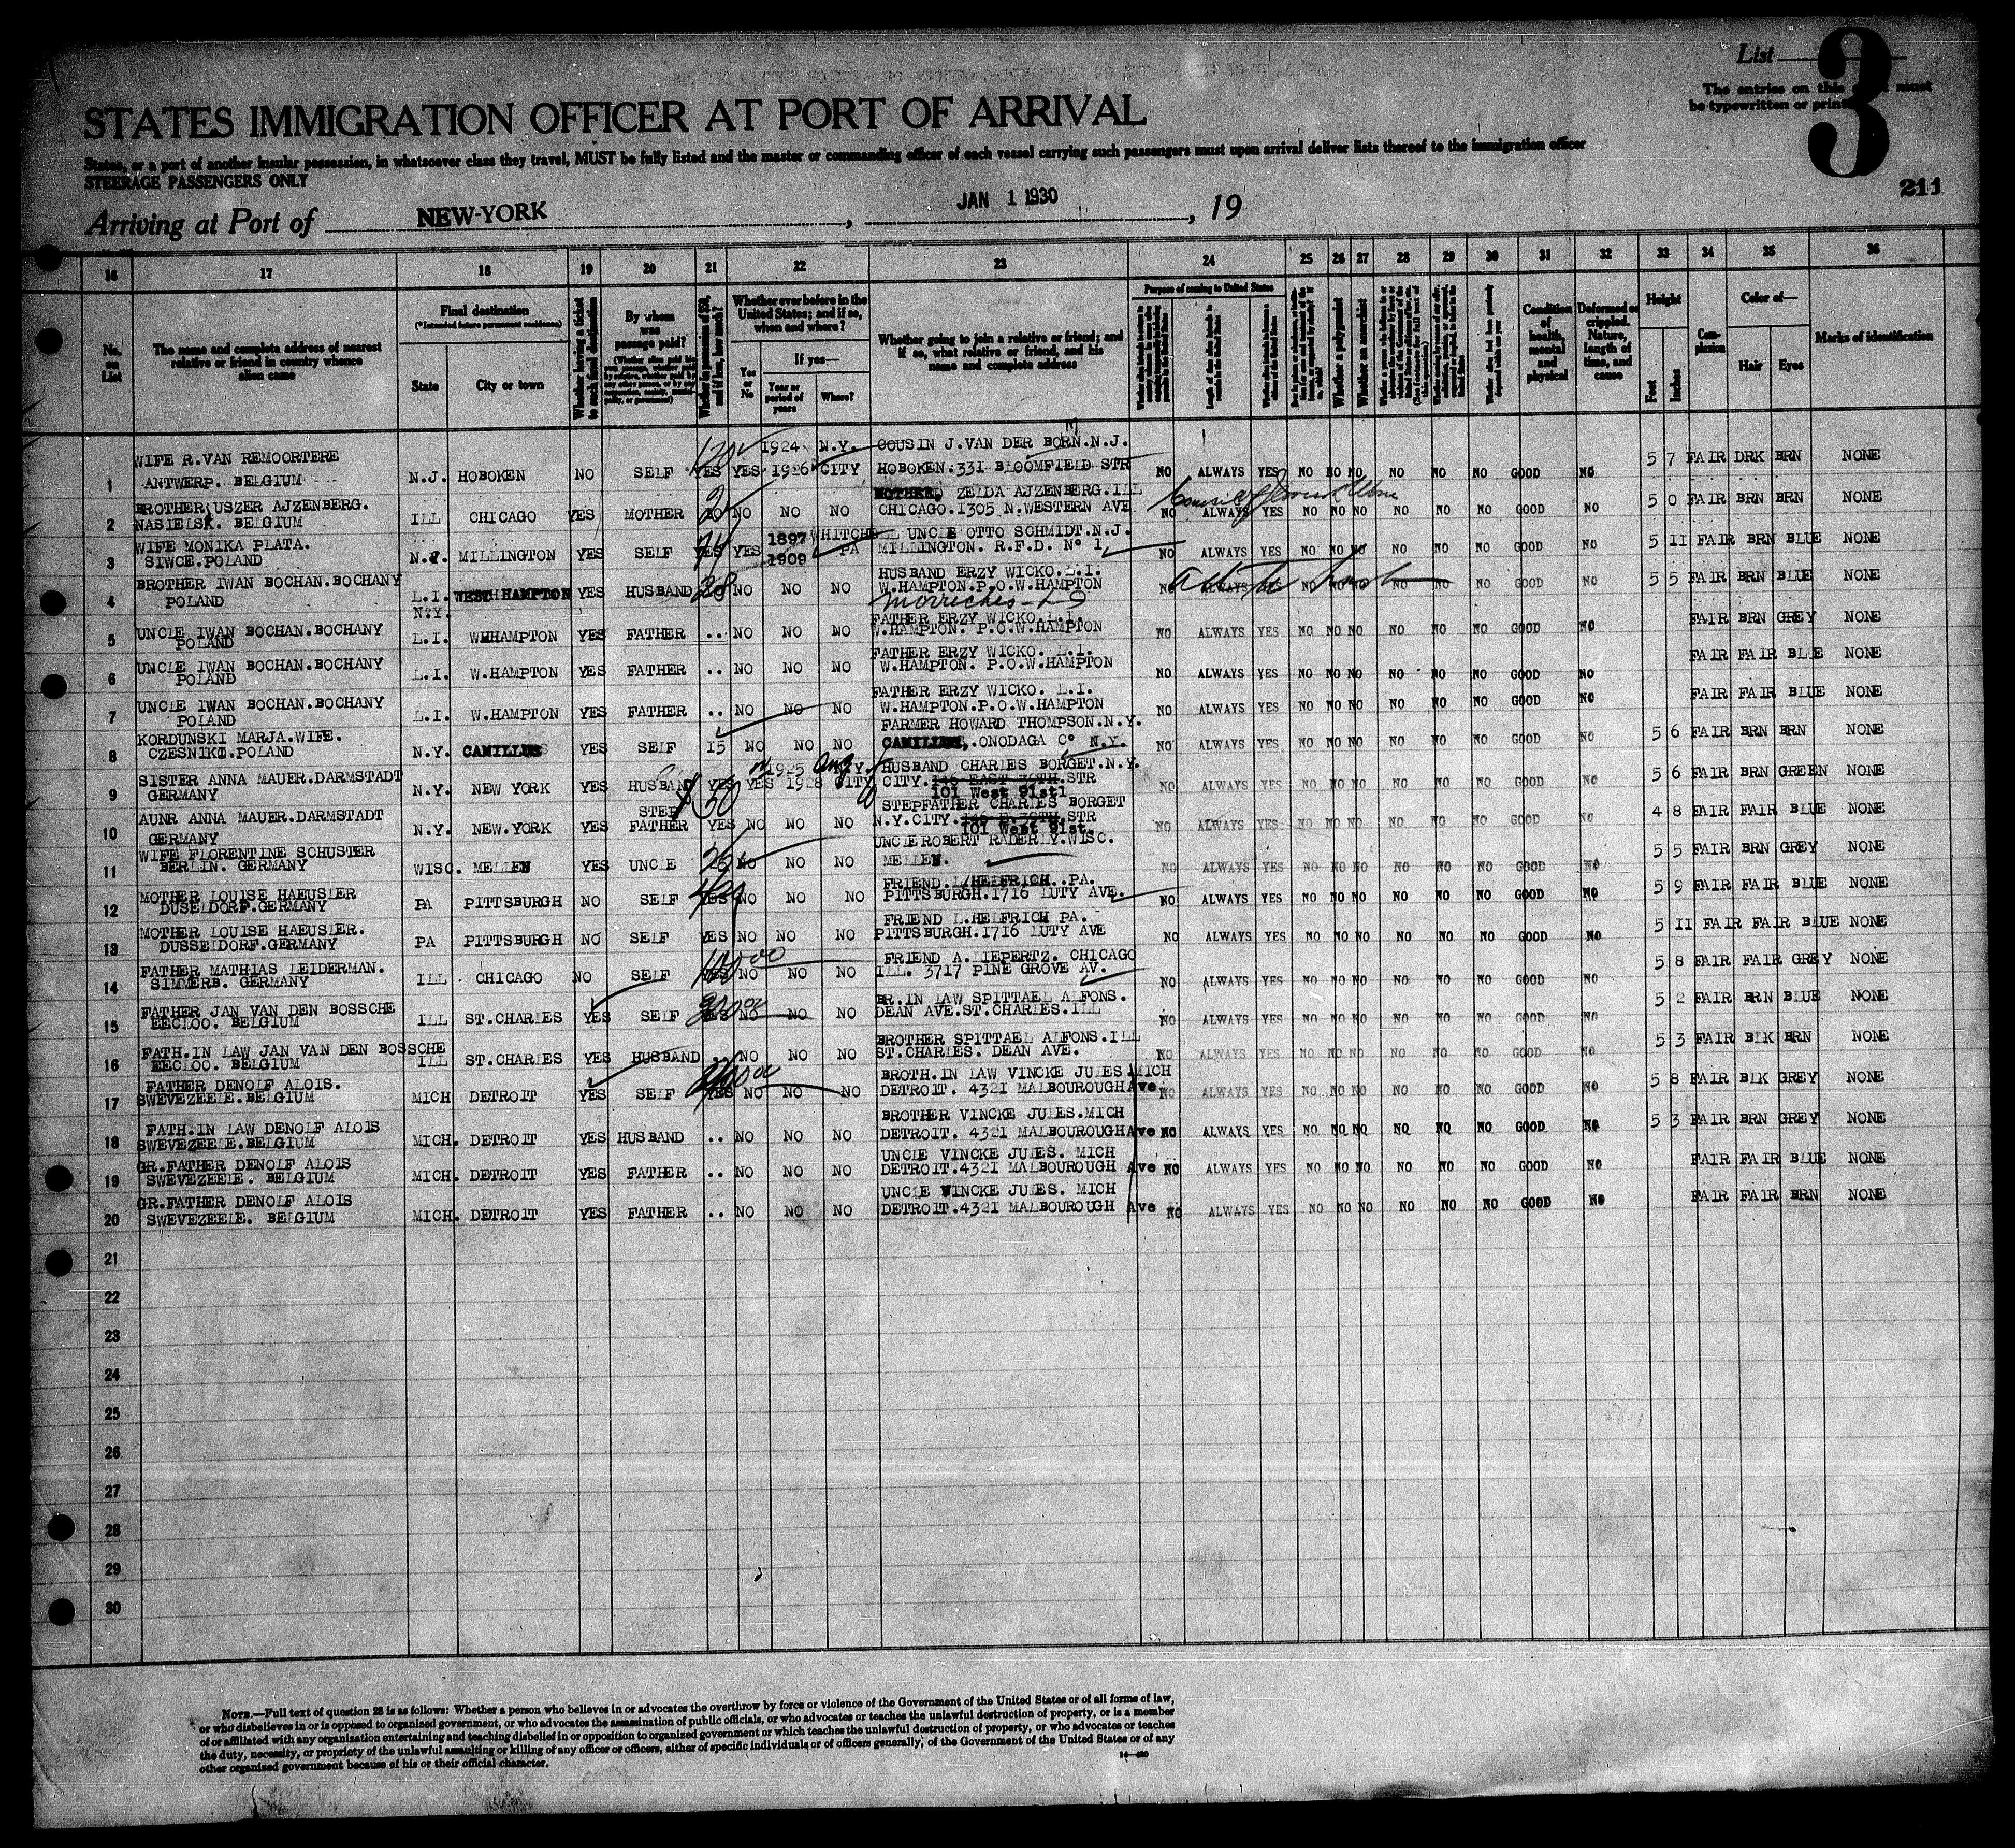 List
3
The entries on this must
be typewritten or
STATES IMMIGRATION OFFICER AT PORT OF ARRIVAL
States, or a port of another insular possession, in whatsoever class they travel, MUST be fully listed and the master or commanding officer of each vessel carrying such passengers must upon arrival deliver lists thereof to the immigration officer
STEERAGE PASSENGERS ONLY
211
Arriving at Port of NEW-YORK , JAN 1 1930 , 19
16 17 18 19 20 21 22 23 24 25 26 27 28 29 30 31 32 33 34 35 36
No. on List
The name and complete address of nearest relative or friend in country whence alien came
Final destination
(*Intended future permanent residence)
State
City or town
Whether having a ticket to such final destination
By whom was passage paid?
Whether in possession of $50, and if less, how much?
Whether ever before in the United States; and if so, when and where?
Yes or No
If yes—
Year or period of years
Where?
Whether going to join a relative or friend; and if so, what relative or friend, and his name and complete address
Purpose of coming to United States
Whether a polygamist
Whether an anarchist
Condition of health, mental and physical
Deformed or crippled. Nature, length of time, and cause
Height
Feet
Inches
Complexion
Color of—
Hair
Eyes
Marks of identification
WIFE R.VAN REMOORTERE 1924 N.Y. COUSIN J.VAN DER BORN.N.J.
1 ANTWERP. BELGIUM N.J. HOBOKEN NO SELF YES YES 1926 CITY HOBOKEN.331 BLOOMFIELD STR NO ALWAYS YES NO NO NO NO NO NO GOOD NO 5 7 FAIR DRK BRN NONE
BROTHER USZER AJZENBERG. MOTHER, ZELDA AJZENBERG.ILL
2 NASIELSK. BELGIUM ILL CHICAGO YES MOTHER NO NO NO CHICAGO.1305 N.WESTERN AVE NO ALWAYS YES NO NO NO NO NO NO GOOD NO 5 0 FAIR BRN BRN NONE
WIFE MONIKA PLATA. 1897 WHITCHELL UNCLE OTTO SCHMIDT.N.J.
3 SIWCE.POLAND N.J. MILLINGTON YES SELF YES YES 1909 PA MILLINGTON. R.F.D. Nº 1 NO ALWAYS YES NO NO NO NO NO NO GOOD NO 5 11 FAIR BRN BLUE NONE
BROTHER IWAN BOCHAN.BOCHANY HUSBAND ERZY WICKO. L.I.
4 POLAND L.I. N.Y. WEST HAMPTON YES HUSBAND 28 NO NO NO W.HAMPTON.P.O.W.HAMPTON NO ALWAYS YES NO NO NO NO NO NO GOOD NO 5 5 FAIR BRN BLUE NONE
UNCLE IWAN BOCHAN.BOCHANY FATHER ERZY WICKO. L.I.
5 POLAND L.I. W.HAMPTON YES FATHER .. NO NO NO W.HAMPTON. P.O.W.HAMPTON NO ALWAYS YES NO NO NO NO NO NO GOOD NO FAIR BRN GREY NONE
UNCLE IWAN BOCHAN.BOCHANY FATHER ERZY WICKO. L.I.
6 POLAND L.I. W.HAMPTON YES FATHER .. NO NO NO W.HAMPTON. P.O.W.HAMPTON NO ALWAYS YES NO NO NO NO NO NO GOOD NO FAIR FAIR BLUE NONE
UNCLE IWAN BOCHAN.BOCHANY FATHER ERZY WICKO. L.I.
7 POLAND L.I. W.HAMPTON YES FATHER .. NO NO NO W.HAMPTON.P.O.W.HAMPTON NO ALWAYS YES NO NO NO NO NO NO GOOD NO FAIR FAIR BLUE NONE
KORDUNSKI MARJA.WIFE. FARMER HOWARD THOMPSON.N.Y.
8 CZESNIKI.POLAND N.Y. CAMILLUS YES SELF 15 NO NO NO CAMILLUS,.ONODAGA Cº N.Y. NO ALWAYS YES NO NO NO NO NO NO GOOD NO 5 6 FAIR BRN BRN NONE
SISTER ANNA MAUER.DARMSTADT 1925 N.Y. HUSBAND CHARLES BORGET.N.Y.
9 GERMANY N.Y. NEW YORK YES HUSBAND YES YES 1928 CITY CITY. 146 EAST 39TH.STR NO ALWAYS YES NO NO NO NO NO NO GOOD NO 5 6 FAIR BRN GREEN NONE
101 West 91st
AUNR ANNA MAUER.DARMSTADT STEP STEPFATHER CHARLES BORGET
10 GERMANY N.Y. NEW.YORK YES FATHER YES NO NO NO N.Y.CITY. 146 E.39TH.STR NO ALWAYS YES NO NO NO NO NO NO GOOD NO 4 8 FAIR FAIR BLUE NONE
101 West 91st.
WIFE FLORENTINE SCHUSTER UNCLE ROBERT RADERLY.WISC.
11 BERLIN. GERMANY WISC. MELLEN YES UNCLE NO NO NO MELLEN. NO ALWAYS YES NO NO NO NO NO NO GOOD NO 5 5 FAIR BRN GREY NONE
MOTHER LOUISE HAEUSLER FRIEND.L.HELFRICH..PA.
12 DUSELDORF.GERMANY PA PITTSBURGH NO SELF YES NO NO NO PITTSBURGH.1716 LUTY AVE. NO ALWAYS YES NO NO NO NO NO NO GOOD NO 5 9 FAIR FAIR BLUE NONE
MOTHER LOUISE HAEUSLER. FRIEND L.HELFRICH PA.
13 DUSSELDORF.GERMANY PA PITTSBURGH NO SELF YES NO NO NO PITTSBURGH.1716 LUTY AVE NO ALWAYS YES NO NO NO NO NO NO GOOD NO 5 11 FAIR FAIR BLUE NONE
FATHER MATHIAS LEIDERMAN. FRIEND A. LIEPERTZ. CHICAGO
14 SIMMERB. GERMANY ILL CHICAGO NO SELF YES NO NO NO ILL. 3717 PINE GROVE AV. NO ALWAYS YES NO NO NO NO NO NO GOOD NO 5 8 FAIR FAIR GREY NONE
FATHER JAN VAN DEN BOSSCHE BR.IN LAW SPITTAEL ALFONS.
15 EECLOO. BELGIUM ILL ST.CHARLES YES SELF YES NO NO NO DEAN AVE.ST.CHARLES.ILL NO ALWAYS YES NO NO NO NO NO NO GOOD NO 5 2 FAIR BRN BLUE NONE
FATH.IN LAW JAN VAN DEN BOSSCHE BROTHER SPITTAEL ALFONS.ILL
16 EECLOO. BELGIUM ILL ST.CHARLES YES HUSBAND .. NO NO NO ST.CHARLES. DEAN AVE. NO ALWAYS YES NO NO NO NO NO NO GOOD NO 5 3 FAIR BLK BRN NONE
FATHER DENOLF ALOIS. BROTH.IN LAW VINCKE JULES.MICH
17 SWEVEZEELE.BELGIUM MICH DETROIT YES SELF YES NO NO NO DETROIT. 4321 MALBOUROUGH Ave NO ALWAYS YES NO NO NO NO NO NO GOOD NO 5 8 FAIR BLK GREY NONE
FATH.IN LAW DENOLF ALOIS BROTHER VINCKE JULES.MICH
18 SWEVEZEELE.BELGIUM MICH. DETROIT YES HUSBAND .. NO NO NO DETROIT. 4321 MALBOUROUGH Ave NO ALWAYS YES NO NO NO NO NO NO GOOD NO 5 3 FAIR BRN GREY NONE
GR.FATHER DENOLF ALOIS UNCLE VINCKE JULES. MICH
19 SWEVEZEELE. BELGIUM MICH. DETROIT YES FATHER .. NO NO NO DETROIT.4321 MALBOUROUGH Ave NO ALWAYS YES NO NO NO NO NO NO GOOD NO FAIR FAIR BLUE NONE
GR.FATHER DENOLF ALOIS UNCLE VINCKE JULES. MICH
20 SWEVEZEELE. BELGIUM MICH. DETROIT YES FATHER .. NO NO NO DETROIT.4321 MALBOUROUGH Ave NO ALWAYS YES NO NO NO NO NO NO GOOD NO FAIR FAIR BRN NONE
21
22
23
24
25
26
27
28
29
30
NOTE.—Full text of question 28 is as follows: Whether a person who believes in or advocates the overthrow by force or violence of the Government of the United States or of all forms of law,
or who disbelieves in or is opposed to organized government, or who advocates the assassination of public officials, or who advocates or teaches the unlawful destruction of property, or is a member
of or affiliated with any organization entertaining and teaching disbelief in or opposition to organized government or which teaches the unlawful destruction of property, or who advocates or teaches
the duty, necessity, or propriety of the unlawful assaulting or killing of any officer or officers, either of specific individuals or of officers generally, of the Government of the United States or of any
other organized government because of his or their official character.